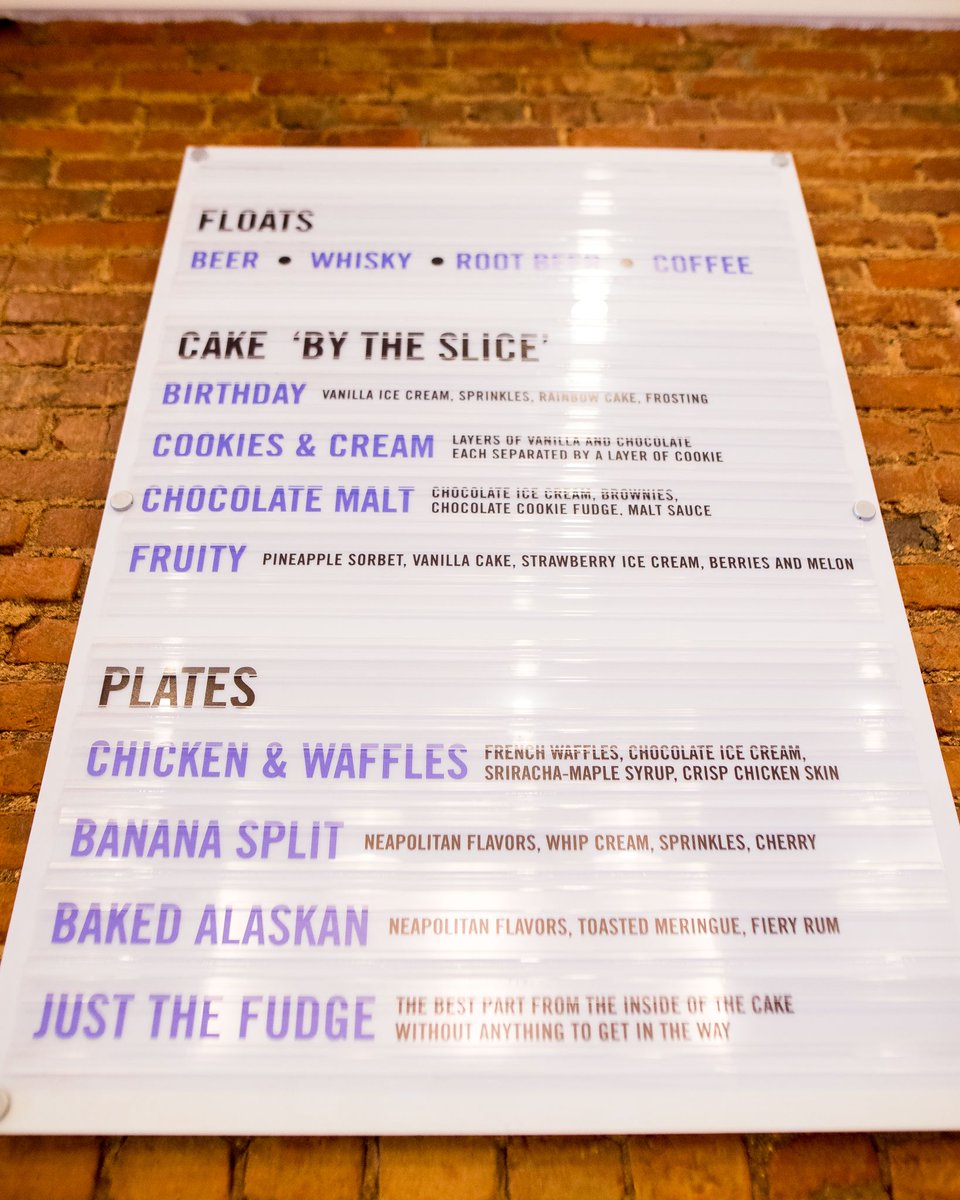 FLOATS
BEER • WHISKY • ROOT BEER • COFFEE
CAKE ‘BY THE SLICE’
BIRTHDAY VANILLA ICE CREAM, SPRINKLES, RAINBOW CAKE, FROSTING
COOKIES & CREAM LAYERS OF VANILLA AND CHOCOLATE
EACH SEPARATED BY A LAYER OF COOKIE
CHOCOLATE MALT CHOCOLATE ICE CREAM, BROWNIES,
CHOCOLATE COOKIE FUDGE, MALT SAUCE
FRUITY PINEAPPLE SORBET, VANILLA CAKE, STRAWBERRY ICE CREAM, BERRIES AND MELON
PLATES
CHICKEN & WAFFLES FRENCH WAFFLES, CHOCOLATE ICE CREAM,
SRIRACHA-MAPLE SYRUP, CRISP CHICKEN SKIN
BANANA SPLIT NEAPOLITAN FLAVORS, WHIP CREAM, SPRINKLES, CHERRY
BAKED ALASKAN NEAPOLITAN FLAVORS, TOASTED MERINGUE, FIERY RUM
JUST THE FUDGE THE BEST PART FROM THE INSIDE OF THE CAKE
WITHOUT ANYTHING TO GET IN THE WAY